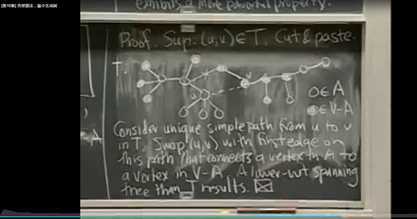 exhibits a more powerful property.
Proof. Sup. (u,v) ∉ T. Cut & paste.
T:
u
v
○ ∈ A
∈ V-A
-A
Consider unique simple path from u to v
in T. Swap (u,v) with first edge on
this path that connects a vertex in A to
a vertex in V-A. A lower-wt spanning
tree than T results.